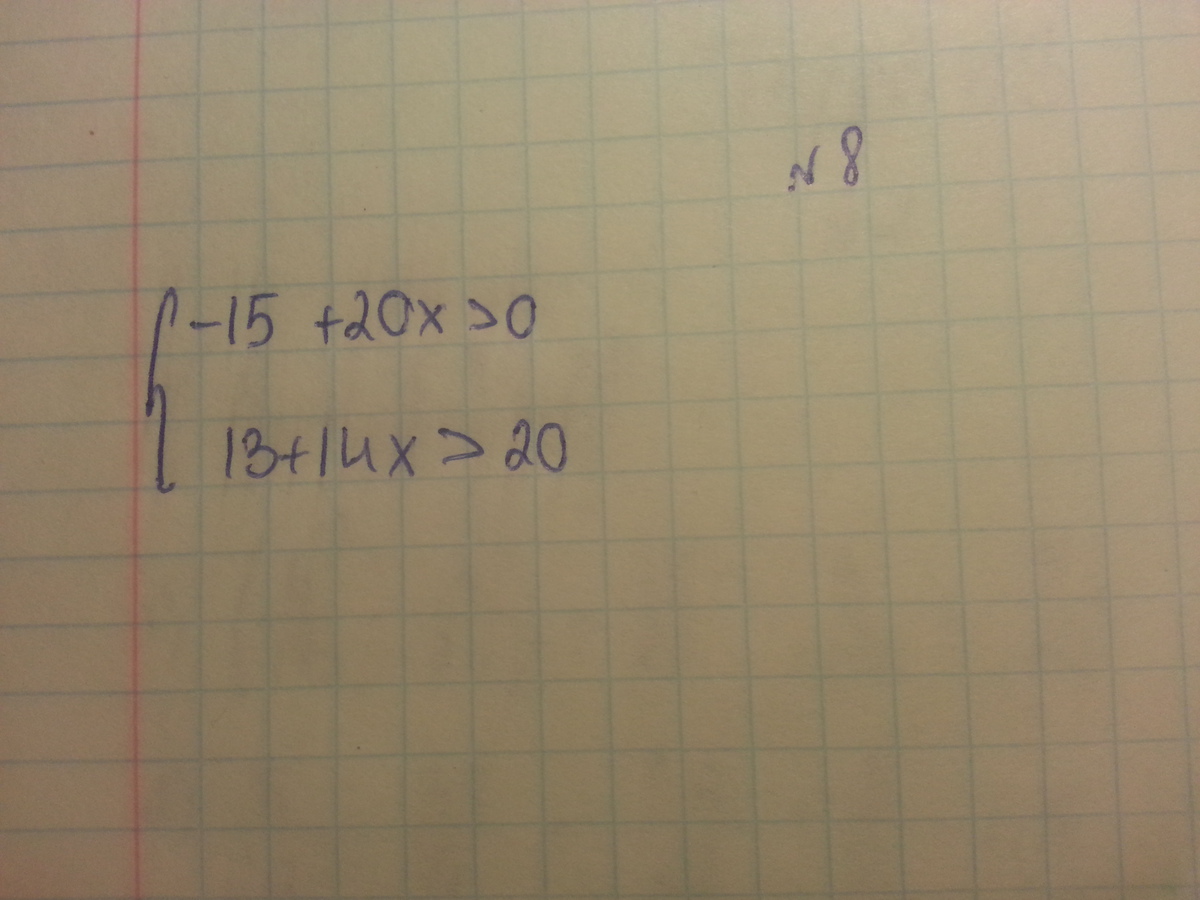 № 8
-15 +20x >0
13+14x > 20